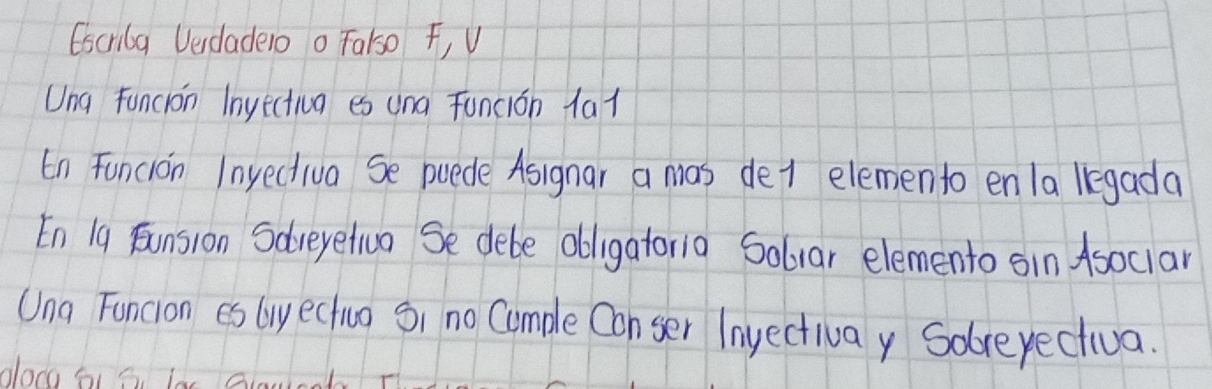 Escriba Verdadero o Falso F, V
Una Función Inyectiva es una Función 1a1
En Función Inyectiva Se puede Asignar a mas de 1 elemento en la llegada
En la Funsion Sobreyetiva Se debe obligatoria Sobrar elemento sin Asociar
Una Funcion es biyectiva Si no Cumple Con ser Inyectiva y Sobreyectiva.